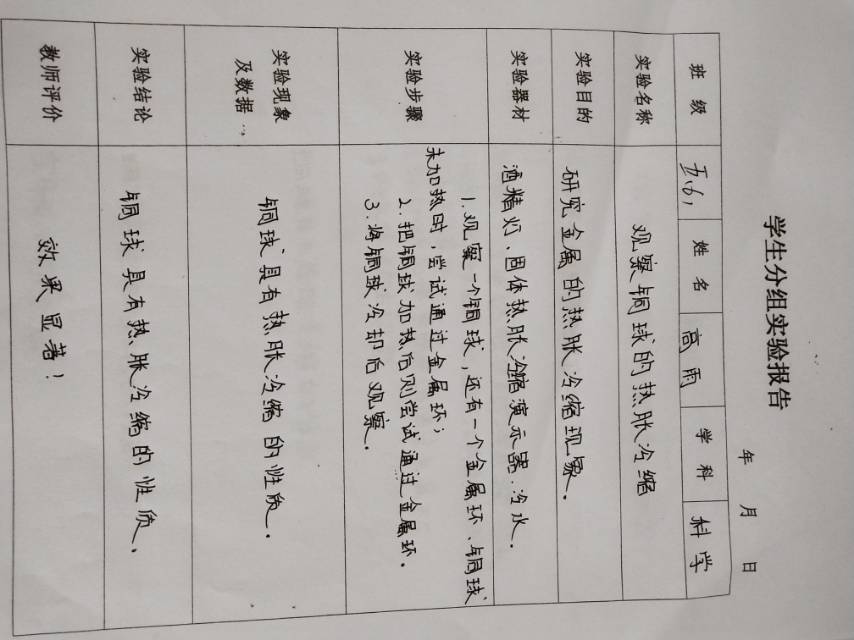 学生分组实验报告
年 月 日
班级 五.6. 姓名 高雨 学科 科学
实验名称 观察铜球的热胀冷缩
实验目的 研究金属的热胀冷缩现象.
实验器材 酒精灯、固体热胀冷缩演示器.冷水.
实验步骤
1.观察一个铜球,还有一个金属环、铜球
未加热时,尝试通过金属环;
2.把铜球加热后则尝试通过金属环.
3.将铜球冷却后观察.
实验现象
及数据
铜球具有热胀冷缩的性质.
实验结论 铜球具有热胀冷缩的性质.
教师评价 效果显著!